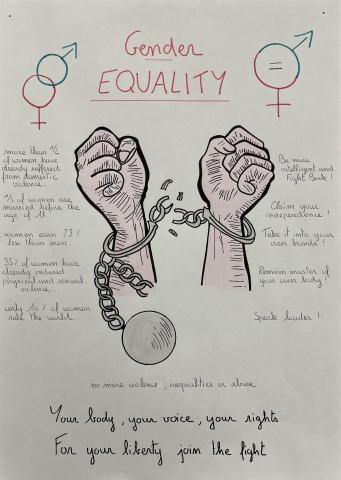 Gender
EQUALITY
=
more than ½
of women have
already suffered
from domestic
violence..
⅓ of women are
married before the
age of 18
women earn 23 %
less than men..
35% of women have
already endured
physical and sexual
violence..
only 10 % of women
rule the world
Be more
intelligent and
Fight Back !
Claim your
independence !
Take it into your
own hands !
Remain master of
your own body !
Speak louder !
no more violence, inequalities or abuse
Your body, your voice, your rights
For your liberty join the fight